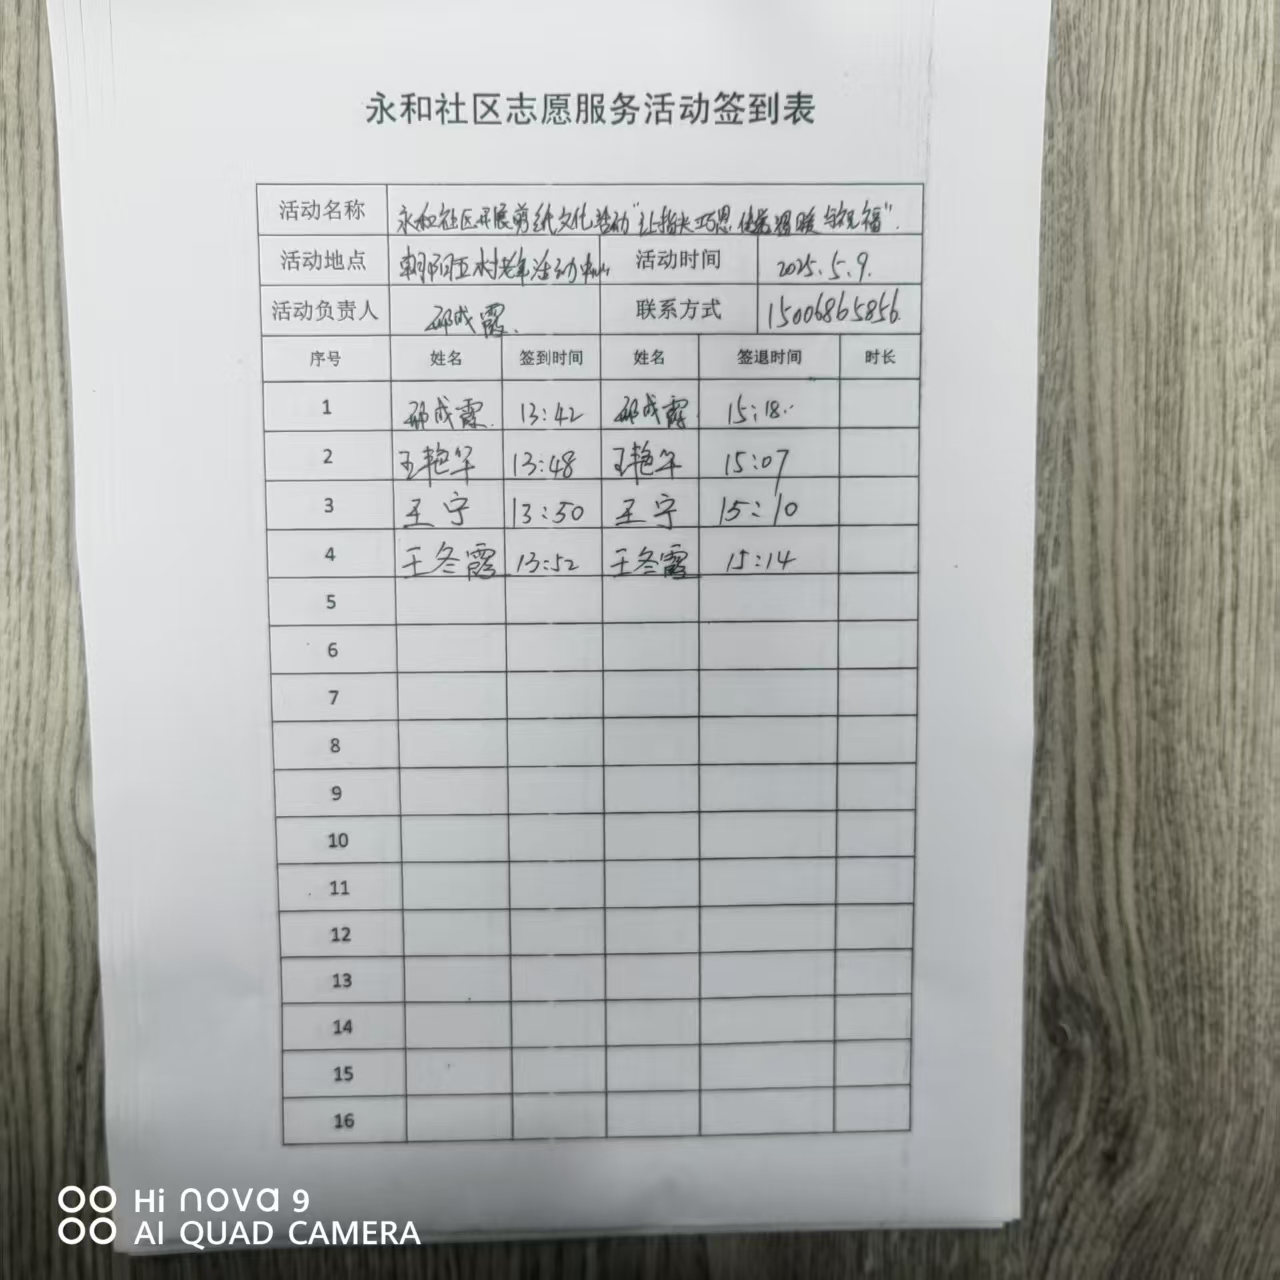 永和社区志愿服务活动签到表
活动名称 永和社区开展剪纸文化活动"让指尖巧思 传递温暖与祝福".
活动地点 朝阳五村老年活动中心 活动时间 2025.5.9.
活动负责人 邵成霞. 联系方式 15006865856.
序号 姓名 签到时间 姓名 签退时间 时长
1 邵成霞. 13:42 邵成霞. 15:18.
2 王艳华 13:48 王艳华 15:07
3 王宁 13:50 王宁 15:10
4 王冬霞 13:52 王冬霞 15:14
5
6
7
8
9
10
11
12
13
14
15
16
Hi nova 9
AI QUAD CAMERA